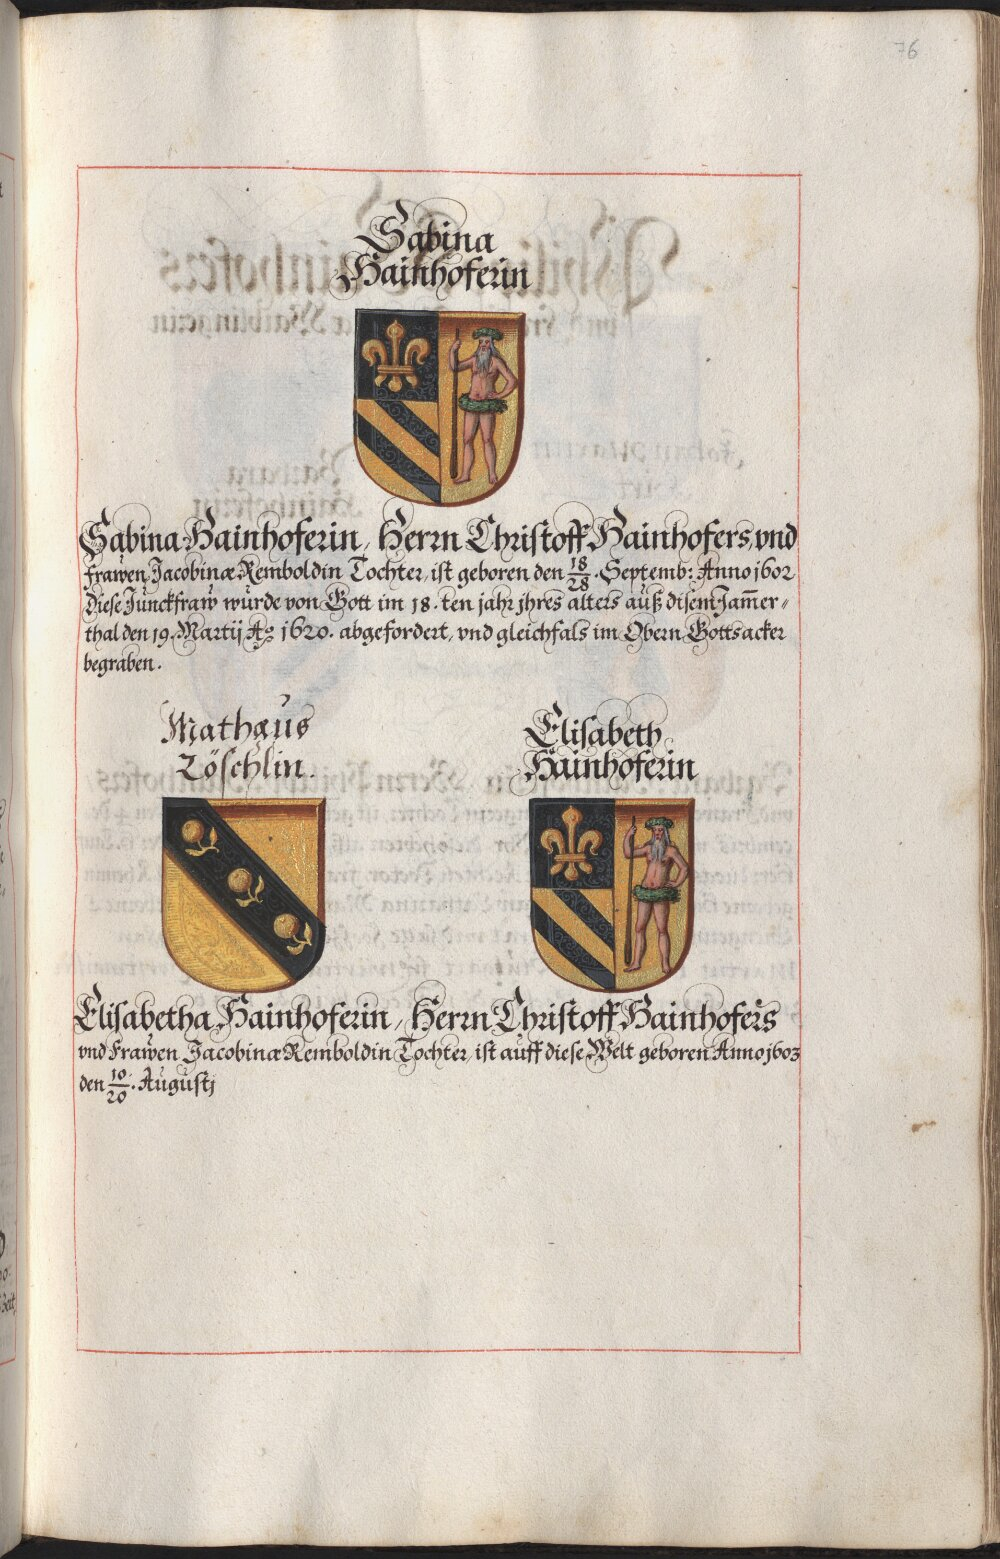 76
Sabina
Hainhoferin
Sabina Hainhoferin, Herrn Christoff Hainhofers, vnd
frawen Jacobinæ Remboldin Tochter, ist geboren den 18/28. Septemb: Anno 1602
Diese Junckfraw wurde von Gott im 18. ten jahr jhres alters auß disem Jam̄er-
thal den 19. Martij Aō 1620. abgefordert, vnd gleichfals im Obern Gottsacker
begraben.
Mathæus
Zöschlin.
Elisabeth
Hainhoferin
Elisabetha Hainhoferin, Herrn Christoff Hainhofers
vnd Frawen Jacobinæ Remboldin Tochter, ist auff diese Welt geboren Anno 1603
den 10/20. Augustj